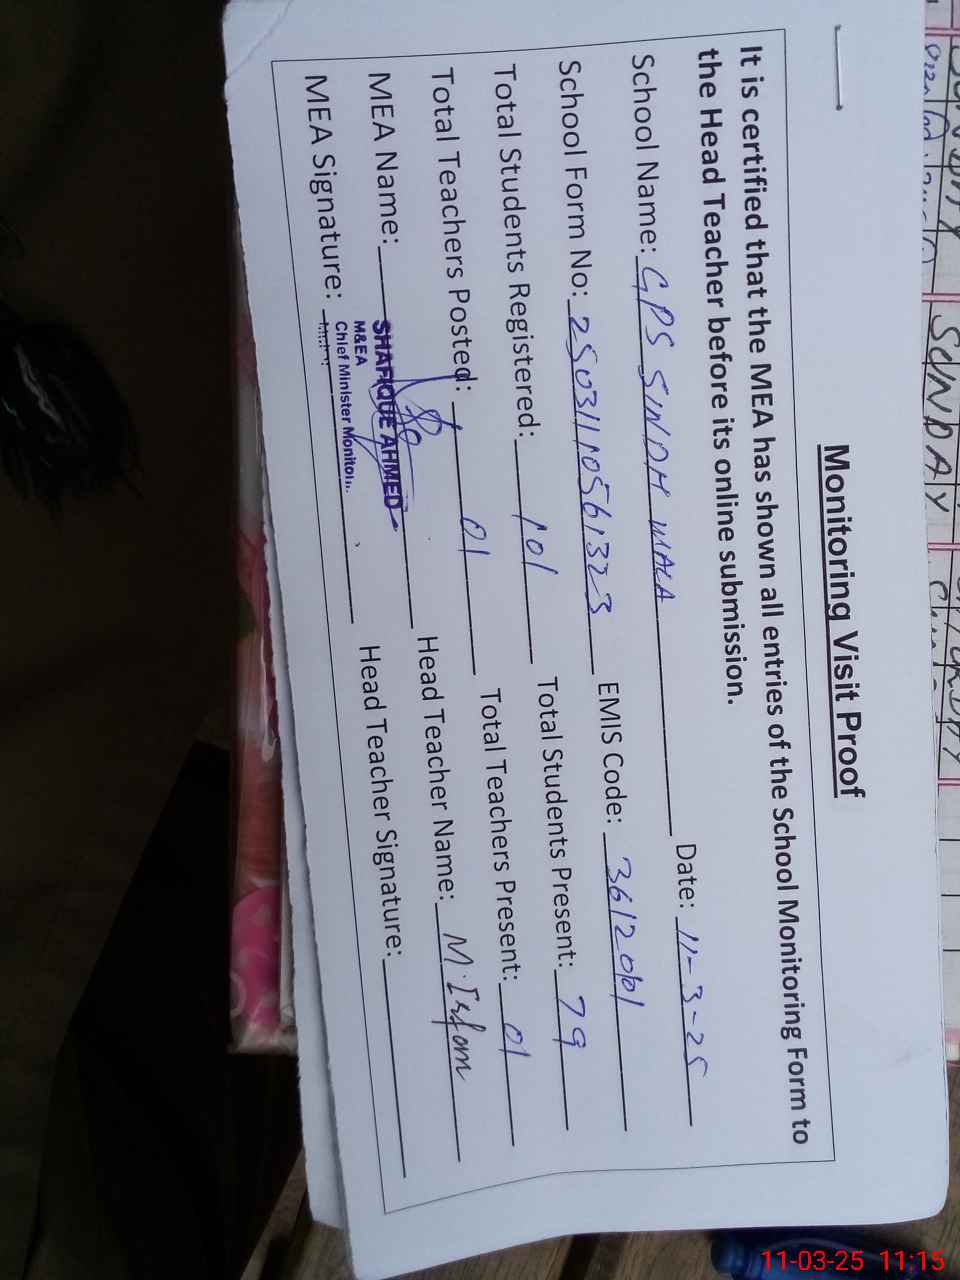 SUNDAY
Monitoring Visit Proof
It is certified that the MEA has shown all entries of the School Monitoring Form to
the Head Teacher before its online submission.
School Name: GPS SINDH WALA Date: 11-3-25
School Form No: 25031110561323 EMIS Code:
Total Students Registered: 101 Total Students Present: 79
Total Teachers Posted: 01 Total Teachers Present: 01
MEA Name: SHAFIQUE AHMED Head Teacher Name: M. Irfan
M&EA
Chief Minister
MEA Signature: Head Teacher Signature:
11-03-25 11:15